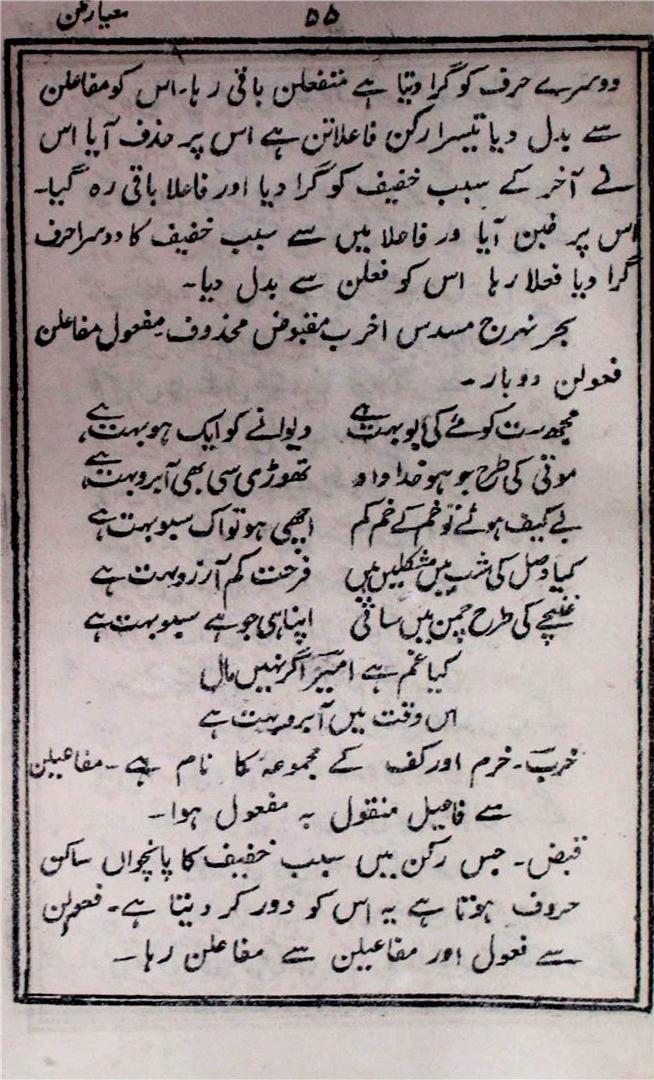 ۵۵ معیار فن
دوسرے حرف کو گرا دیتا ہے متفعلن باقی رہا۔ اس کو مفاعلن
سے بدل دیا تیسرا رکن فاعلاتن ہے اس پر حذف آیا اس
نے آخر کے سبب خفیف کو گرا دیا اور فاعلا باقی رہ گیا۔
اس پر خبن آیا ور فاعلا میں سے سبب خفیف کا دوسرا حرف
گرا دیا فعلا رہا اس کو فعلن سے بدل دیا۔
بحر ہزج مسدس اخرب مقبوض محذوف مفعول مفاعلن
فعولن دوبار۔
مجھ مست کو مئے کی بو بہت ہے دیوانے کو ایک ہو بہت ہے
موتی کی طرح جو ہو خداداد تھوڑی سی بھی آبرو بہت ہے
بے کیف ہوئے تو خم کے خم کم اچھی ہو تو اک سبو بہت ہے
کیا وصل کی شب میں مشکلیں ہیں فرحت کم آرزو بہت ہے
غنچے کی طرح چمن میں ساقی اپنا ہی جو ہے سبو بہت ہے
کیا غم ہے امیر اگر نہیں مال
اس وقت میں آبرو بہت ہے
خرب۔ خرم اور کف کے مجموعہ کا نام ہے۔ مفاعیلن
سے فاعیل منقول بہ مفعول ہوا۔
قبض۔ جس رکن میں سبب خفیف کا پانچواں ساکن
حروف ہوتا ہے یہ اس کو دور کر دیتا ہے۔ فعولن
سے فعول اور مفاعیلن سے مفاعلن رہا۔